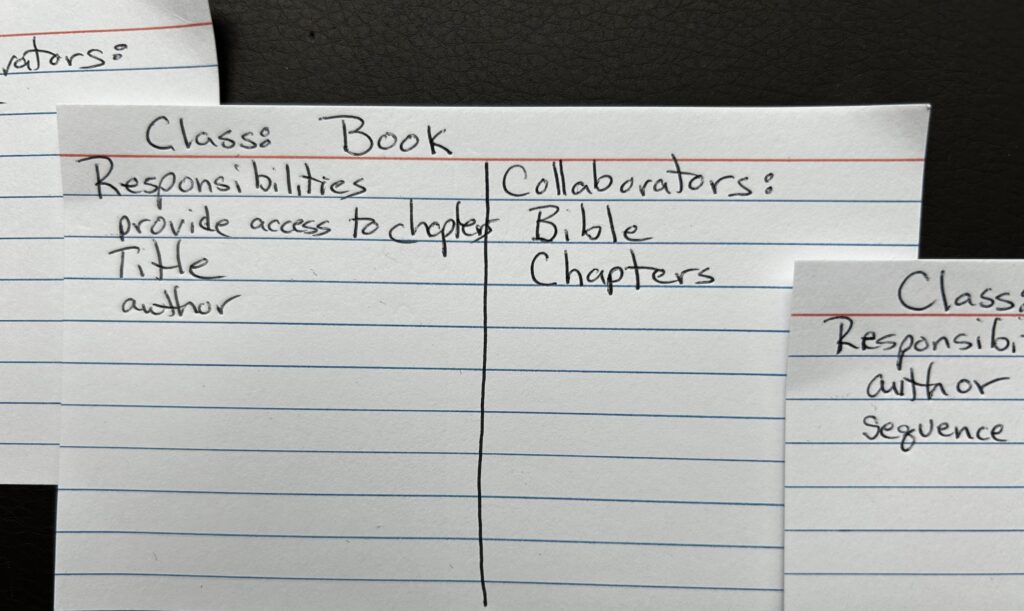 rators:
Class: Book
Responsibilities
provide access to chapters
Title
author
Collaborators:
Bible
Chapters
Class:
Responsibi
author
sequence